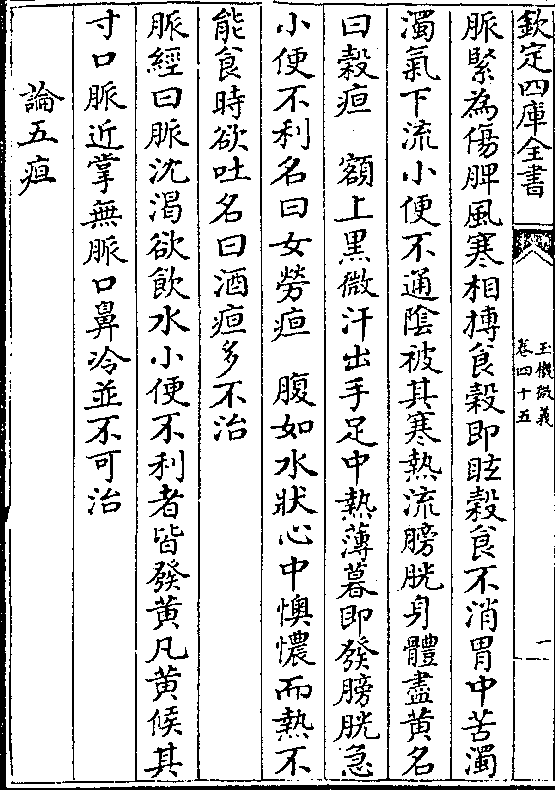 欽定四庫全書
玉機微義
卷四十五
一
脈緊為傷脾風寒相摶食穀即眩穀食不消胃中苦濁
濁氣下流小便不通陰被其寒熱流膀胱身體盡黃名
曰穀疸　額上黑微汗出手足中熱薄暮即發膀胱急
小便不利名曰女勞疸　腹如水狀心中懊憹而熱不
能食時欲吐名曰酒疸多不治
脈經曰脈沈渴欲飲水小便不利者皆發黃凡黃候其
寸口脈近掌無脈口鼻冷並不可治
論五疸